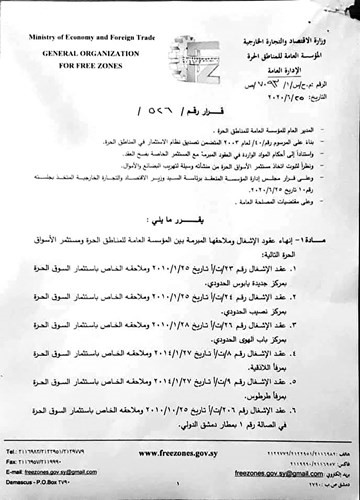 Ministry of Economy and Foreign Trade
GENERAL ORGANIZATION
FOR FREE ZONES
وزارة الاقتصاد والتجارة الخارجية
المؤسسة العامة للمناطق الحرة
الإدارة العامة
التاريخ: ٢٠٢٠/٦/٢٥
قرار رقم / ٥٢٦ /
- المدير العام للمؤسسة العامة للمناطق الحرة .
- بناء على المرسوم رقم /٤٠/ لعام ٢٠٠٣ المتضمن تصديق نظام الاستثمار في المناطق الحرة.
- واستناداً إلى أحكام المواد الواردة في العقود المبرمة مع المستثمر الخاصة بفسخ العقد.
- ونظراً لثبوت اتخاذ مستثمر الأسواق الحرة من منشأته وسيلة لتهريب البضائع والأموال.
- وعلى قرار مجلس إدارة المؤسسة المنعقد برئاسة السيد وزير الاقتصاد والتجارة الخارجية المتخذ بجلسته
رقم ١٠ تاريخ ٢٠٢٠/٦/٢٥.
- وعلى مقتضيات المصلحة العامة .
يقرر ما يلي :
مادة ١- إنهاء عقود الإشغال وملاحقها المبرمة بين المؤسسة العامة للمناطق الحرة ومستثمر الأسواق
الحرة التالية:
١. عقد الإشغال رقم ٢٣/ت/أ تاريخ ٢٠١٠/١/٢٥ وملاحقه الخاص باستثمار السوق الحرة
بمركز جديدة يابوس الحدودي.
٢. عقد الإشغال رقم ٢٤/ت/أ تاريخ ٢٠١٠/١/٢٥ وملاحقه الخاص باستثمار السوق الحرة
بمركز نصيب الحدودي.
٣. عقد الإشغال رقم ٢٦/ت/أ تاريخ ٢٠١٠/١/٢٨ وملاحقه الخاص باستثمار السوق الحرة
بمركز باب الهوى الحدودي.
٤. عقد الإشغال رقم ٨/ت/أ تاريخ ٢٠١٤/١/٢٧ وملاحقه الخاص باستثمار السوق الحرة
بمرفأ اللاذقية.
٥. عقد الإشغال رقم ٩/ت/أ تاريخ ٢٠١٤/١/٢٧ وملاحقه الخاص باستثمار السوق الحرة
بمرفأ طرطوس.
٦. عقد الإشغال رقم ٢٠٦/ت/أ تاريخ ٢٠١٠/١٠/٢٥ وملاحقه الخاص باستثمار السوق الحرة
في الصالة رقم ١ بمطار دمشق الدولي.
www.freezones.gov.sy
E-mail: freezones.gov.sy@gmail.com
Damascus - P.O.Box ٢٧٩٠
بريد إلكتروني: freezones.gov.sy@gmail.com
دمشق ص.ب ٢٧٩٠
١